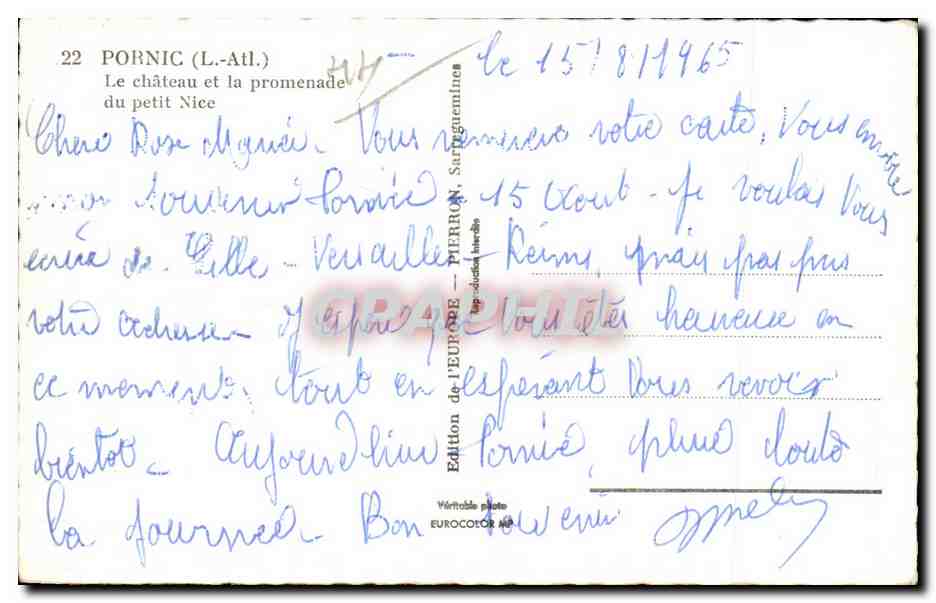 22 PORNIC (L.-Atl.)
Le château et la promenade
du petit Nice
44
le 15/8/1965
Chere Rose Vous remercie votre carte, Vous envoie
mon souvenir Pornic - 15 Aout - Je voulais Vous
écrire de Lille - Versailles - Reims, mais pas pris
votre adresse - J'espère que Vous êtes heureuse en
ce moment, tout en espérant Vous revoir
bientot - Aujourd'hui Pornic, pluie toute
la journee - Bon souvenir
Edition de l'EUROPE — PIERRON, Sarreguemines
Reproduction interdite
GRAPHILI
Véritable photo
EUROCOLOR MP